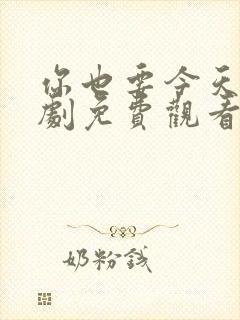 你也要今天
劇免費觀看
奶粉錢